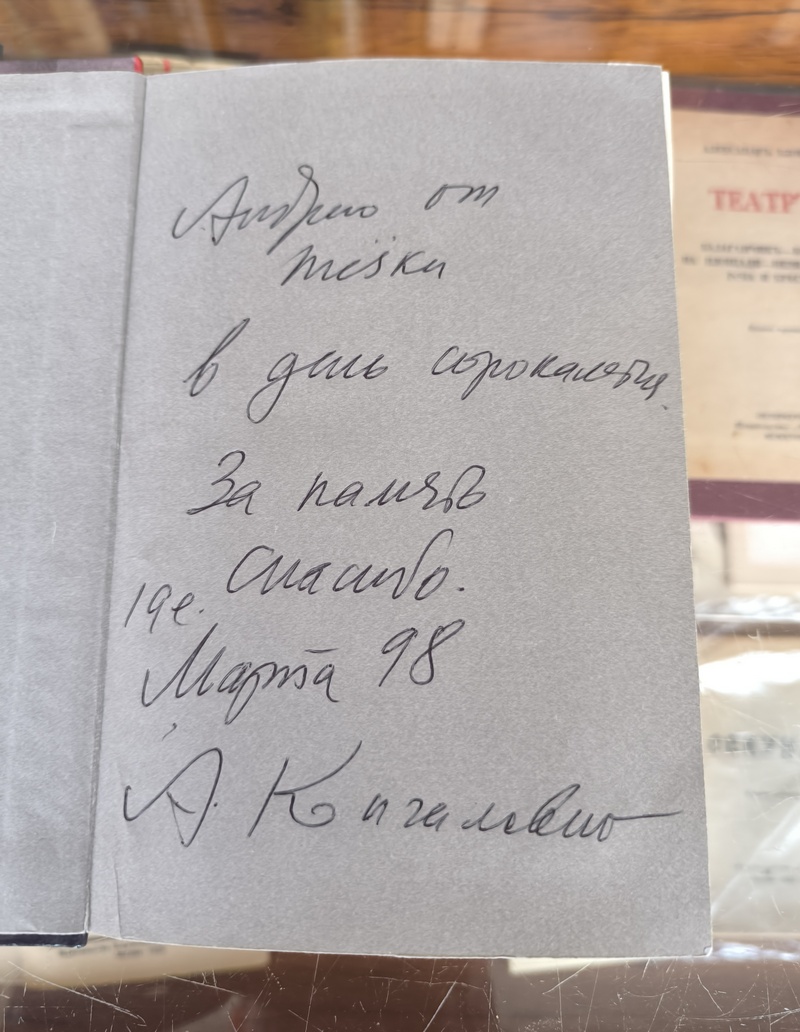 Андрею от
тёзки
в день сорокалетия.
За память
Спасибо.
19е.
Марта 98
А. Кончаловский
ТЕАТР